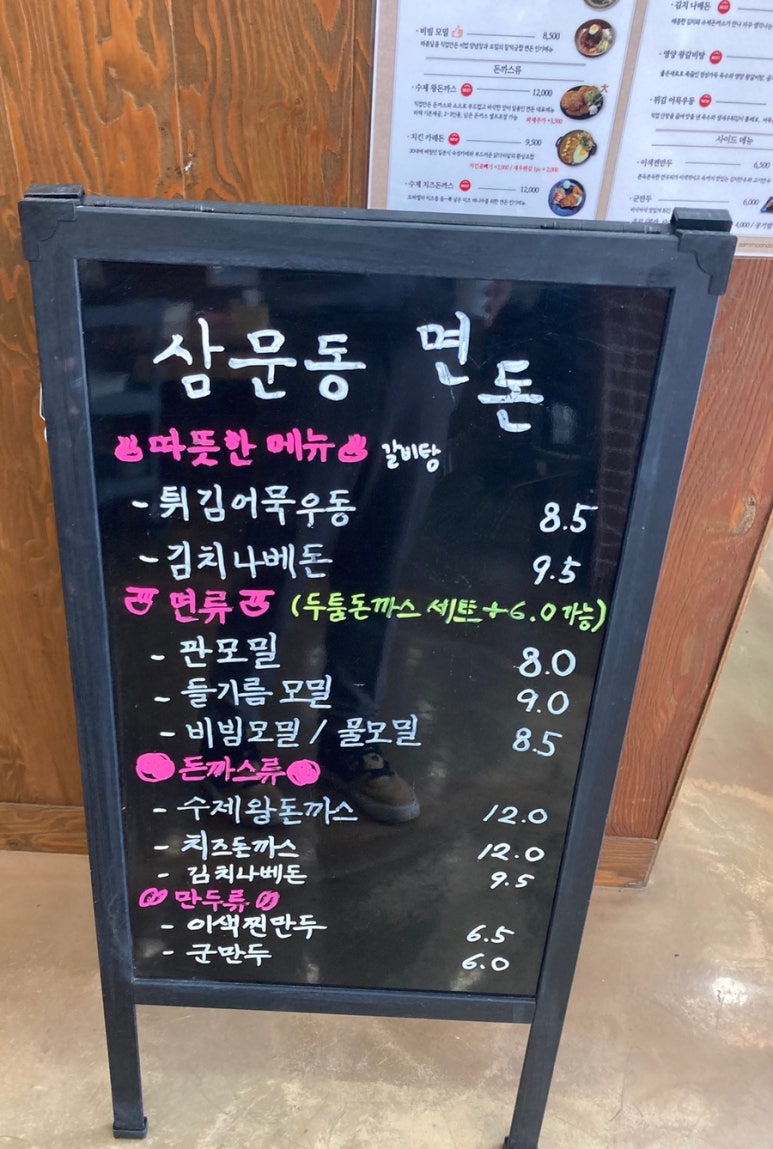 · 비빔 모밀 8,500
돈까스류
· 수제 왕돈까스 BEST 12,000
· 치킨 카레돈 9,500
· 수제 치즈돈까스 12,000
· 김치 나베돈 BEST
· 영양 왕갈비탕
· 튀김 어묵우동
사이드 메뉴
· 이색찐만두 6,500
· 군만두 6,000
삼문동 면돈
따뜻한 메뉴 갈비탕
- 튀김어묵우동 8.5
- 김치나베돈 9.5
면류 (두툼돈까스 세트+6.0가능)
- 판모밀 8.0
- 들기름 모밀 9.0
- 비빔모밀 / 물모밀 8.5
돈까스류
- 수제왕돈까스 12.0
- 치즈돈까스 12.0
- 김치나베돈 9.5
만두류
- 이색찐만두 6.5
- 군만두 6.0